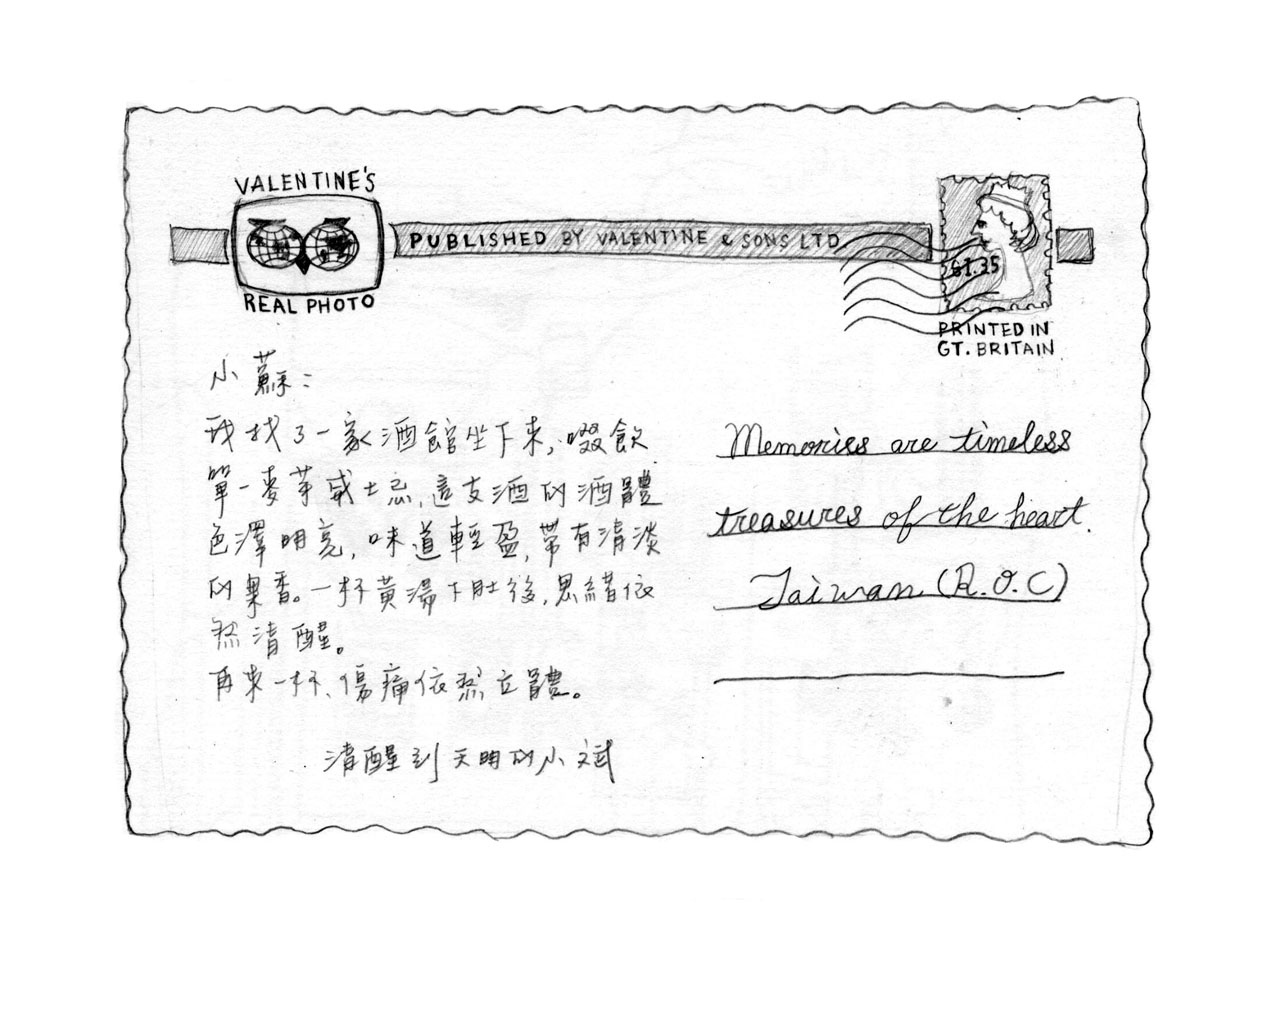 VALENTINE'S
REAL PHOTO
PUBLISHED BY VALENTINE & SONS LTD
£1.35
PRINTED IN
GT. BRITAIN
小蘇:
我找了一家酒館坐下來,啜飲
單一麥芽威士忌,這支酒的酒體
色澤明亮,味道輕盈,帶有清淡
的果香。一杯黃湯下肚後,思緒依
然清醒。
再來一杯、傷痛依然立體。
清醒到天明的小斌
Memories are timeless
treasures of the heart.
Taiwan (R.O.C)